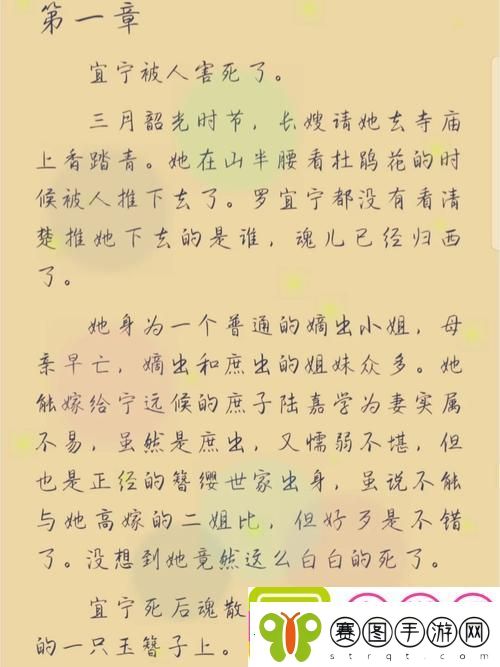 第一章
宜宁被人害死了。
三月韶光时节，长嫂请她去寺庙
上香踏青。她在山半腰看杜鹃花的时
候被人推下去了。罗宜宁都没有看清
楚推她下去的是谁，魂儿已经归西
了。
她身为一个普通的嫡出小姐，母
亲早亡，嫡出和庶出的姐妹众多。她
能嫁给宁远候的庶子陆嘉学为妻实属
不易，虽然是庶出，又懦弱不堪，但
也是正经的簪缨世家出身，虽说不能
与她高嫁的二姐比，但好歹是不错
了。没想到她竟然这么白白的死了。
宜宁死后魂散
的一只玉簪子上。
赛图手游网
strqt.com